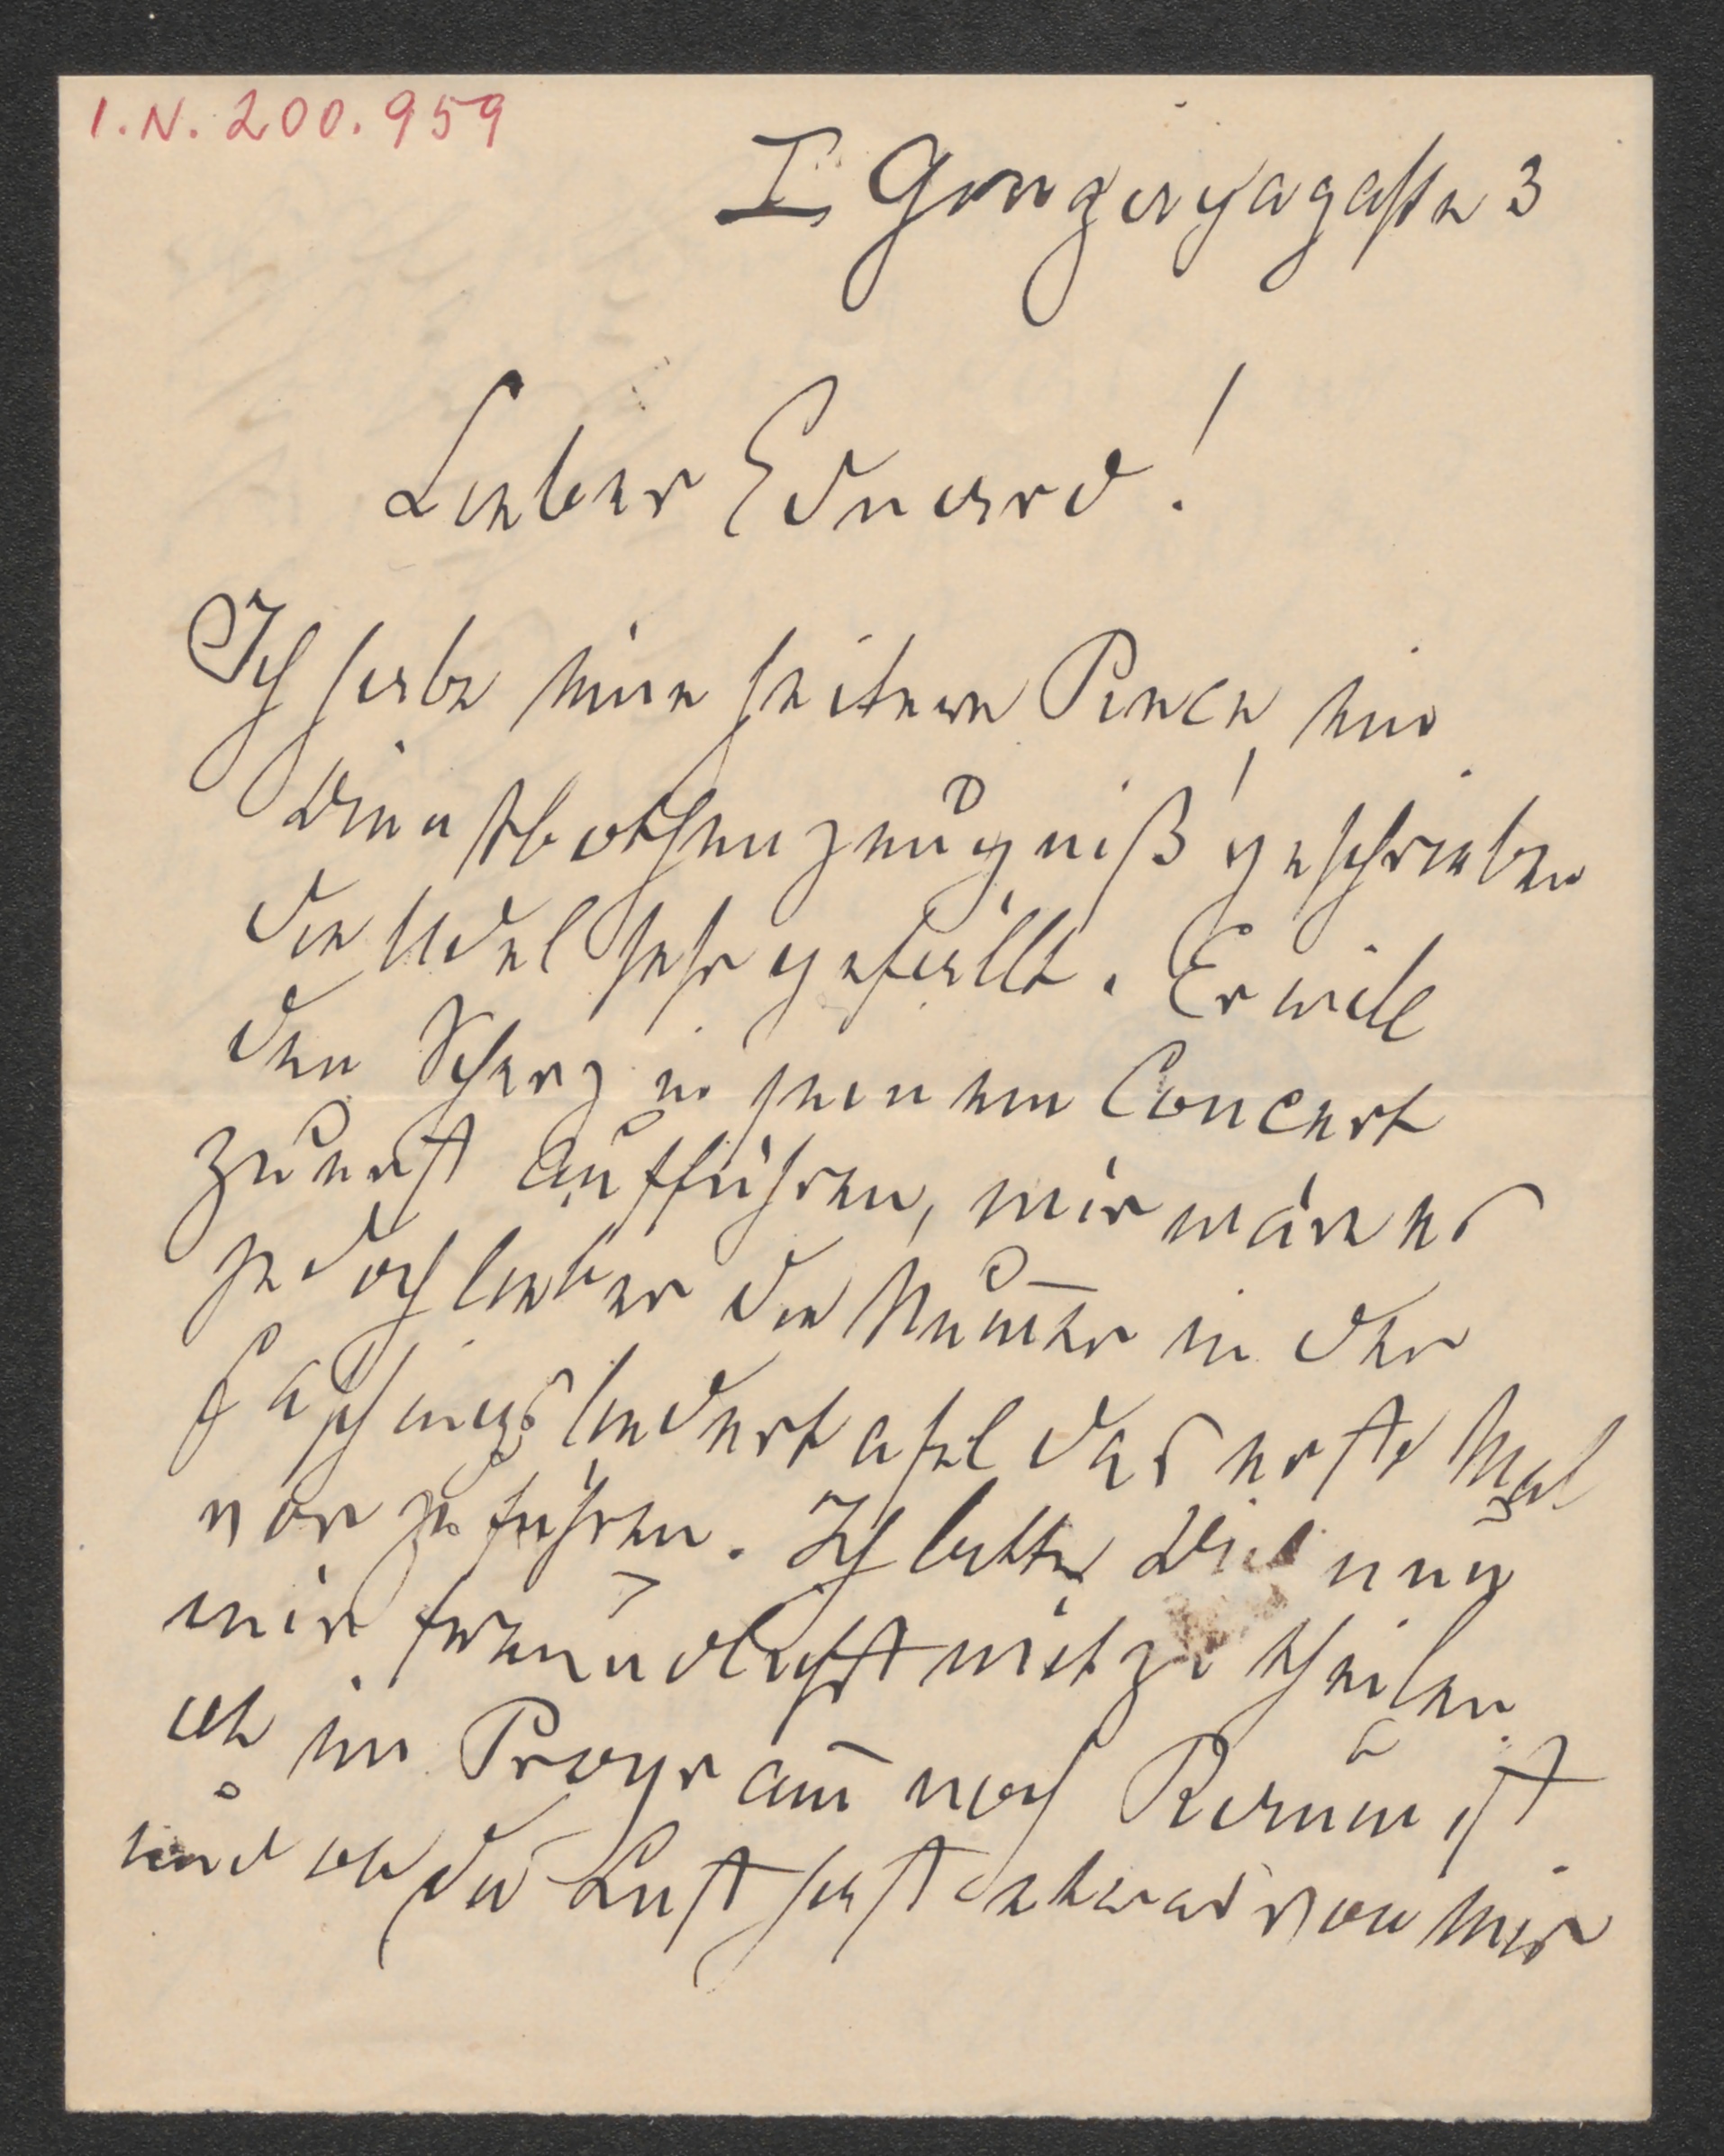 I.N. 200.959
I Gonzagagasse 3
Lieber Eduard!
Ich habe eine heitere Piece, ein
Dienstbothenzeugniß geschrieben
die Udel sehr gefällt. Er will
den Scherz in seinem Concert
zuerst aufführen, mir wäre es
jedoch lieber die Num̅er in der
Faschingsliedertafel das erste Mal
vorzuführen. Ich bitte Dich nun
mir freundlichst mitzutheilen
ob im Program̅ noch Raum ist
und ob Du Lust hast etwas von mir